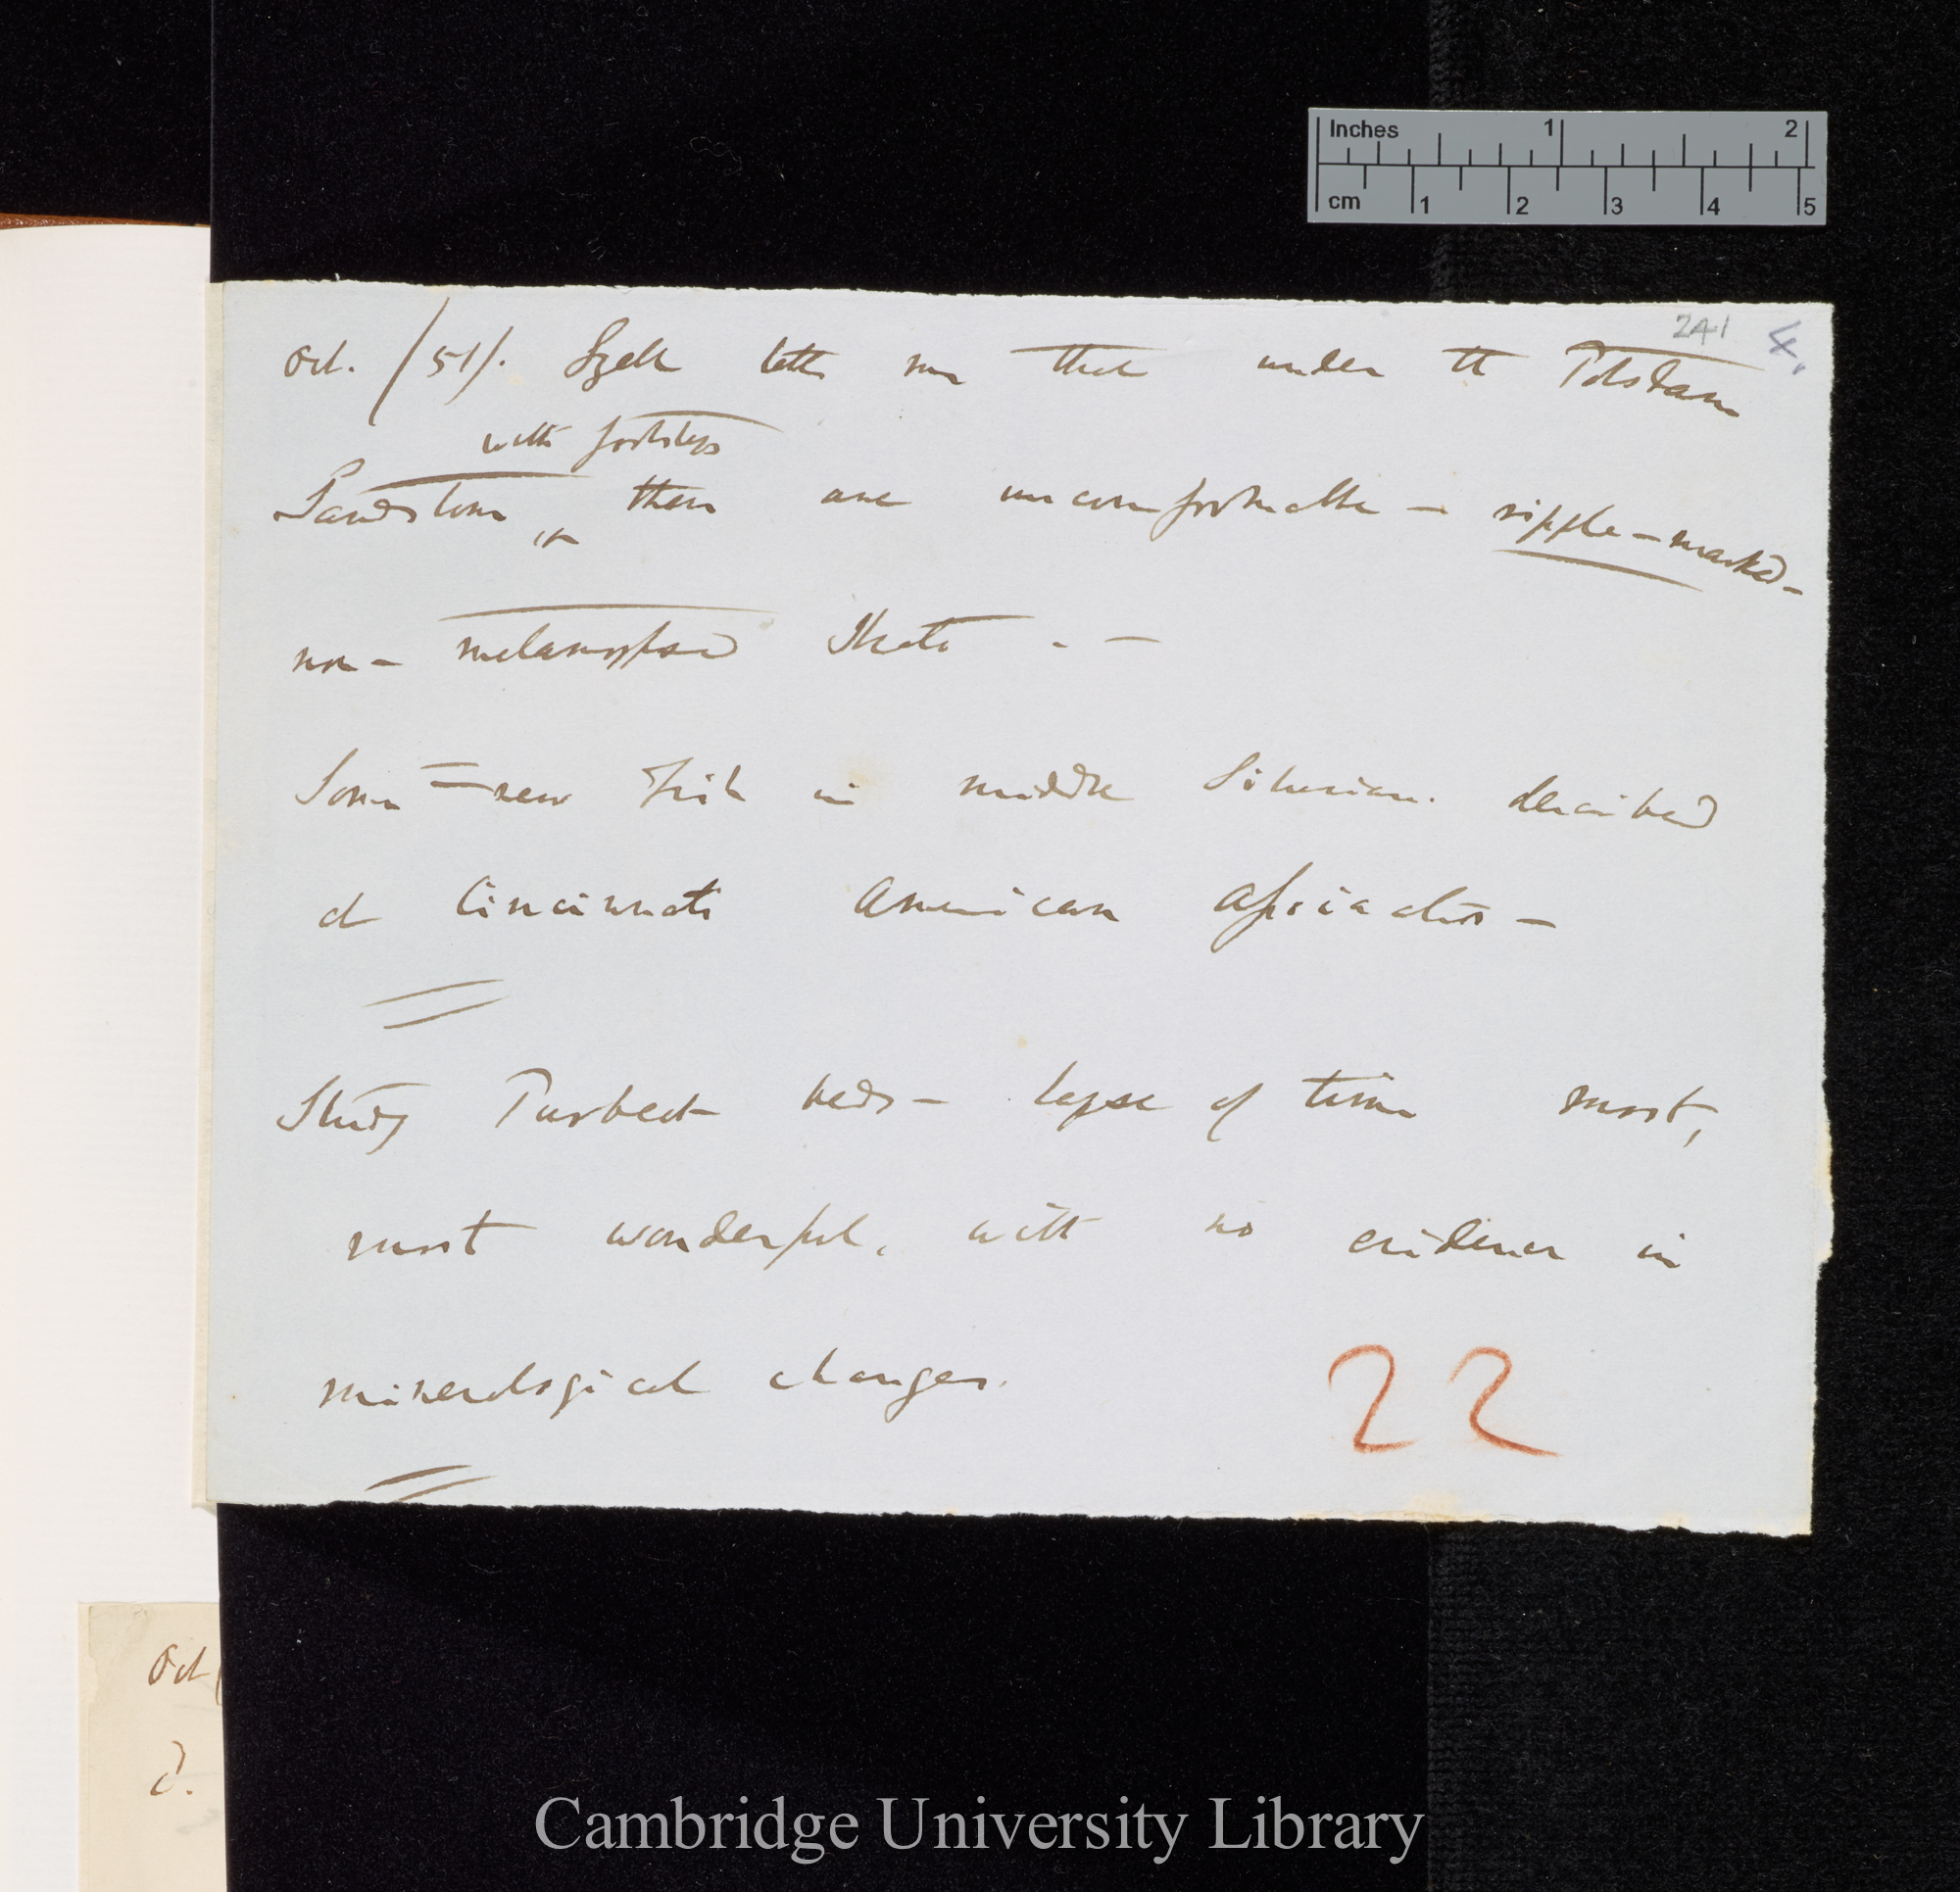 241
Inches 1 2
cm 1 2 3 4 5
Oct. /51/. Lyell tells me that under the Potsdam
with footsteps
Sandstone there are unconformable – ripple-marked –
non – metamorphosed Strata . –
Some new Fish in middle Silurian. described
at Cincinnati American Association –
Study Purbeck beds – lapse of time most,
most wonderful, with no evidence in
mineralogical changes.
22
Oct
d.
Cambridge University Library